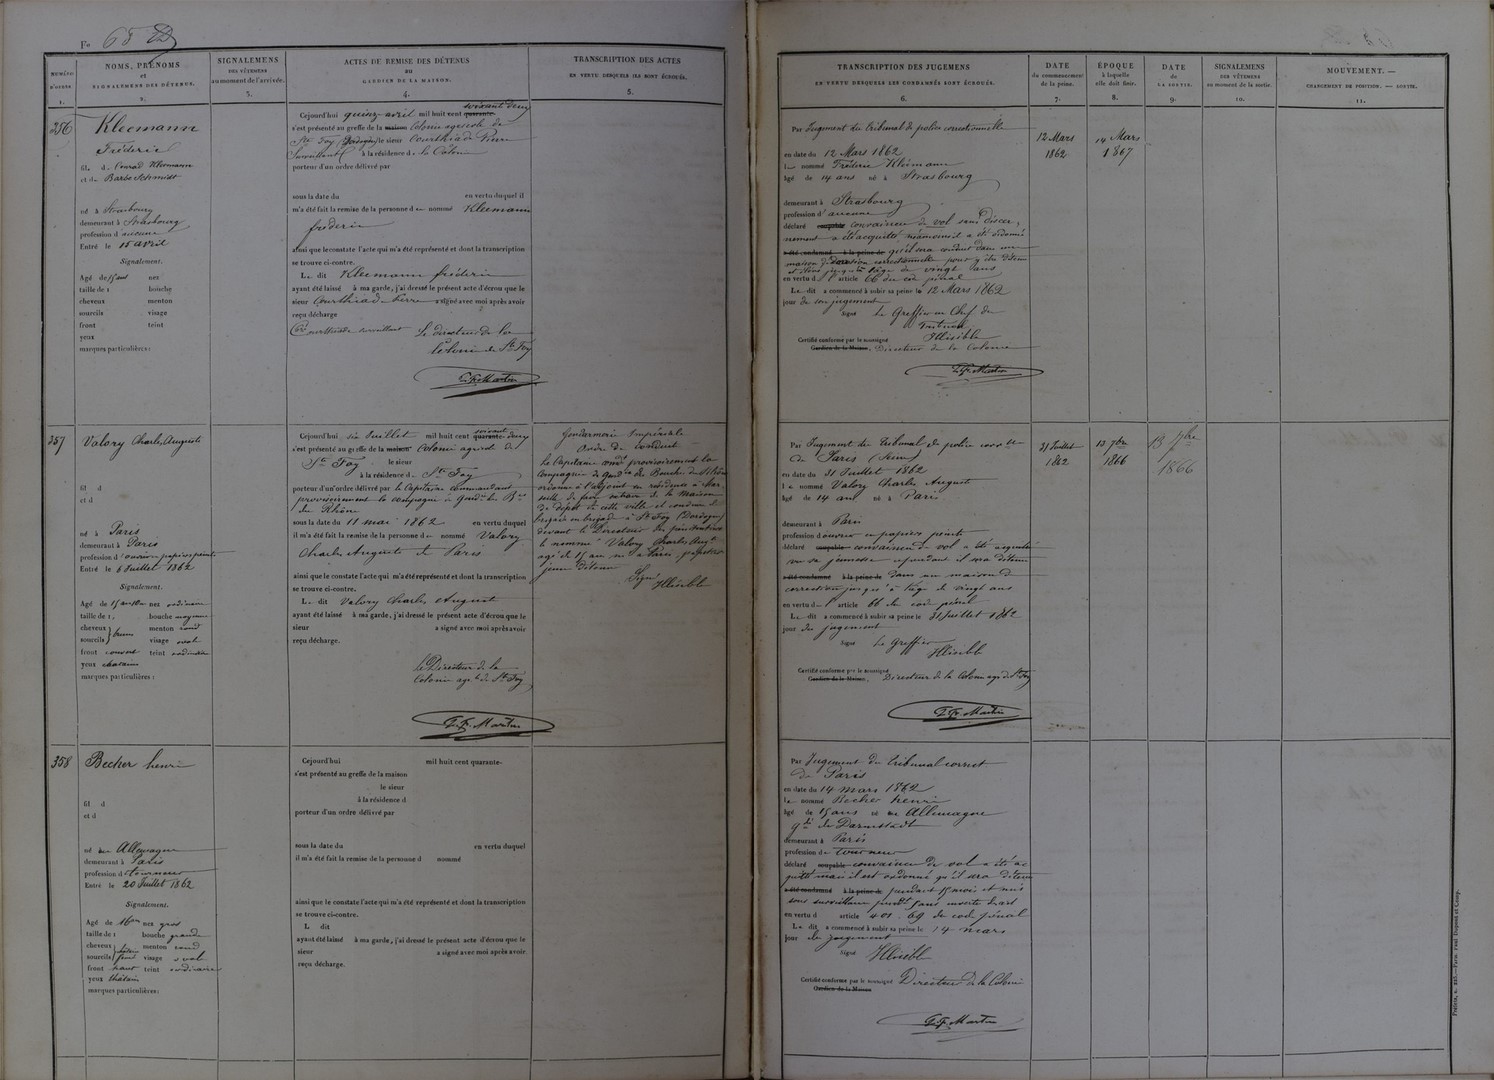 Fo 65
NUMÉRO D'ORDRE 1.
NOMS, PRÉNOMS et SIGNALEMENS DES DÉTENUS. 2.
SIGNALEMENS DES VÊTEMENS au moment de l'arrivée. 3.
ACTES DE REMISE DES DÉTENUS au GARDIEN DE LA MAISON. 4.
TRANSCRIPTION DES ACTES EN VERTU DESQUELS ILS SONT ÉCROUÉS. 5.
256
Kleemann
Fréderic
fil. d. Conrad Kleemann
et d. Barbe Schmidt
né à Strasbourg
demeurant à Strasbourg
profession d aucune
Entré le 15 avril
Signalement.
Agé de 15 ans nez
taille de 1 bouche
cheveux menton
sourcils visage
front teint
yeux
marques particulières :
Cejourd'hui quinze avril mil huit cent quarante- soixante deux
s'est présenté au greffe de la maison Colonie agricole de
Ste Foy (Dordogne) le sieur Courthiade Pierre
Surveillant à la résidence d. la Colonie
porteur d'un ordre délivré par
sous la date du en vertu duquel il
m'a été fait la remise de la personne d nommé Kleemann
fréderic
ainsi que le constate l'acte qui m'a été représenté et dont la transcription
se trouve ci-contre.
Le dit Kleemann fréderic
ayant été laissé à ma garde, j'ai dressé le présent acte d'écrou que le
sieur Courthiade Pierre a signé avec moi après avoir
reçu décharge
Courthiade surveillant Le directeur de la
Colonie de Ste Foy
Martin
357
Valory Charles Auguste
fil d
et d
né à Paris
demeurant à Paris
profession d'ouvrier papiers peints
Entré le 6 Juillet 1862
Signalement.
Agé de 15 ans nez ordinaire
taille de 1. bouche moyenne
cheveux brun menton rond
sourcils visage ovale
front couvert teint ordinaire
yeux chatain
marques particulières :
Cejourd'hui six Juillet mil huit cent quarante- soixante deux
s'est présenté au greffe de la maison Colonie agricole de
Ste Foy le sieur
à la résidence d. Ste Foy
porteur d'un ordre délivré par le Capitaine commandant
provisoirement la compagnie de Gend. des B.
du Rhône
sous la date du 11 mai 1862 en vertu duquel
il m'a été fait la remise de la personne d nommé Valory
Charles Auguste de Paris
ainsi que le constate l'acte qui m'a été représenté et dont la transcription
se trouve ci-contre.
Le dit Valory Charles Auguste
ayant été laissé à ma garde, j'ai dressé le présent acte d'écrou que le
sieur a signé avec moi après avoir
reçu décharge.
Le Directeur de la
Colonie agle de Ste Foy
Martin
Gendarmerie Impériale
Ordre de conduite
Le Capitaine comdt provisoirement la
Compagnie de Gendie des Bouches du Rhône
ordonne à l'adjoint en résidence à Mar
seille de faire extraire de la maison
de dépôt de cette ville et conduire de
brigade en brigade à Ste Foy (Dordogne)
devant le Directeur
le nommé Valory Charles Augte
agé de 15 ans né à Paris
jeune détenu
Signé
Illisible
358
Becher henri
fil d
et d
né en Allemagne
demeurant à Paris
profession d tourneur
Entré le 20 Juillet 1862
Signalement.
Agé de 16 ans nez gros
taille de 1 bouche grande
cheveux menton rond
sourcils visage ovale
front haut teint ordinaire
yeux chatain
marques particulières :
Cejourd'hui mil huit cent quarante-
s'est présenté au greffe de la maison
le sieur
à la résidence d
porteur d'un ordre délivré par
sous la date du en vertu duquel
il m'a été fait la remise de la personne d nommé
ainsi que le constate l'acte qui m'a été représenté et dont la transcription
se trouve ci-contre.
L dit
ayant été laissé à ma garde, j'ai dressé le présent acte d'écrou que le
sieur a signé avec moi après avoir
reçu décharge.
TRANSCRIPTION DES JUGEMENS EN VERTU DESQUELS LES CONDAMNÉS SONT ÉCROUÉS. 6.
DATE du commencement de la peine. 7.
ÉPOQUE à laquelle elle doit finir. 8.
DATE de LA SORTIE. 9.
SIGNALEMENS DES VÊTEMENS au moment de la sortie. 10.
MOUVEMENT. — CHANGEMENT DE POSITION. — SORTIE. 11.
Par Jugement du tribunal de police correctionnelle
en date du 12 Mars 1862
le nommé Fréderic Kleemann
âgé de 14 ans né à Strasbourg
demeurant à Strasbourg
profession d'aucune
déclaré coupable convaincu de vol sans discer
nement a été acquitté néanmoins il a été ordonné
a été condamné à la peine de qu'il sera conduit dans une
maison de correction correctionnelle pour y être détenu
et élevé jusqu'à l'âge de vingt ans
en vertu d l'article 66 du code pénal
Le dit a commencé à subir sa peine le 12 Mars 1862
jour de son jugement
Signé Le Greffier en Chef de
Illisible
Certifié conforme par le soussigné
Gardien de la Maison. Directeur de la Colonie
Martin
12 Mars
1862
14 Mars
1867
Par Jugement du tribunal de police corrtlle
de Paris (Seine)
en date du 31 Juillet 1862
le nommé Valory Charles Auguste
âgé de 14 ans né à Paris
demeurant à Paris
profession d'ouvrier en papiers peints
déclaré coupable convaincu de vol a été acquitté
vu sa jeunesse cependant il sera détenu
a été condamné à la peine de dans une maison de
correction jusqu'à l'âge de vingt ans
en vertu d l'article 66 du code pénal
Le dit a commencé à subir sa peine le 31 Juillet 1862
jour du jugement
Signé Le Greffier
Illisible
Certifié conforme par le soussigné
Gardien de la Maison. Directeur de la Colonie agle de Ste Foy
Martin
31 Juillet
1862
13 7bre
1866
13 7bre
1866
Par Jugement du tribunal correct
de Paris
en date du 14 mars 1862
le nommé Becher henri
âgé de 15 ans né en Allemagne
gd. de Darmstadt
demeurant à Paris
profession de tourneur
déclaré coupable convaincu de vol a été ac
quitté mais il est ordonné qu'il sera détenu
a été condamné à la peine de pendant 15 mois et mis
sous surveillance
en vertu d article 401. 69 du code pénal
Le dit a commencé à subir sa peine le 14 mars
jour du jugement
Signé Illisible
Certifié conforme par le soussigné
Gardien de la Maison Directeur de la Colonie
Martin